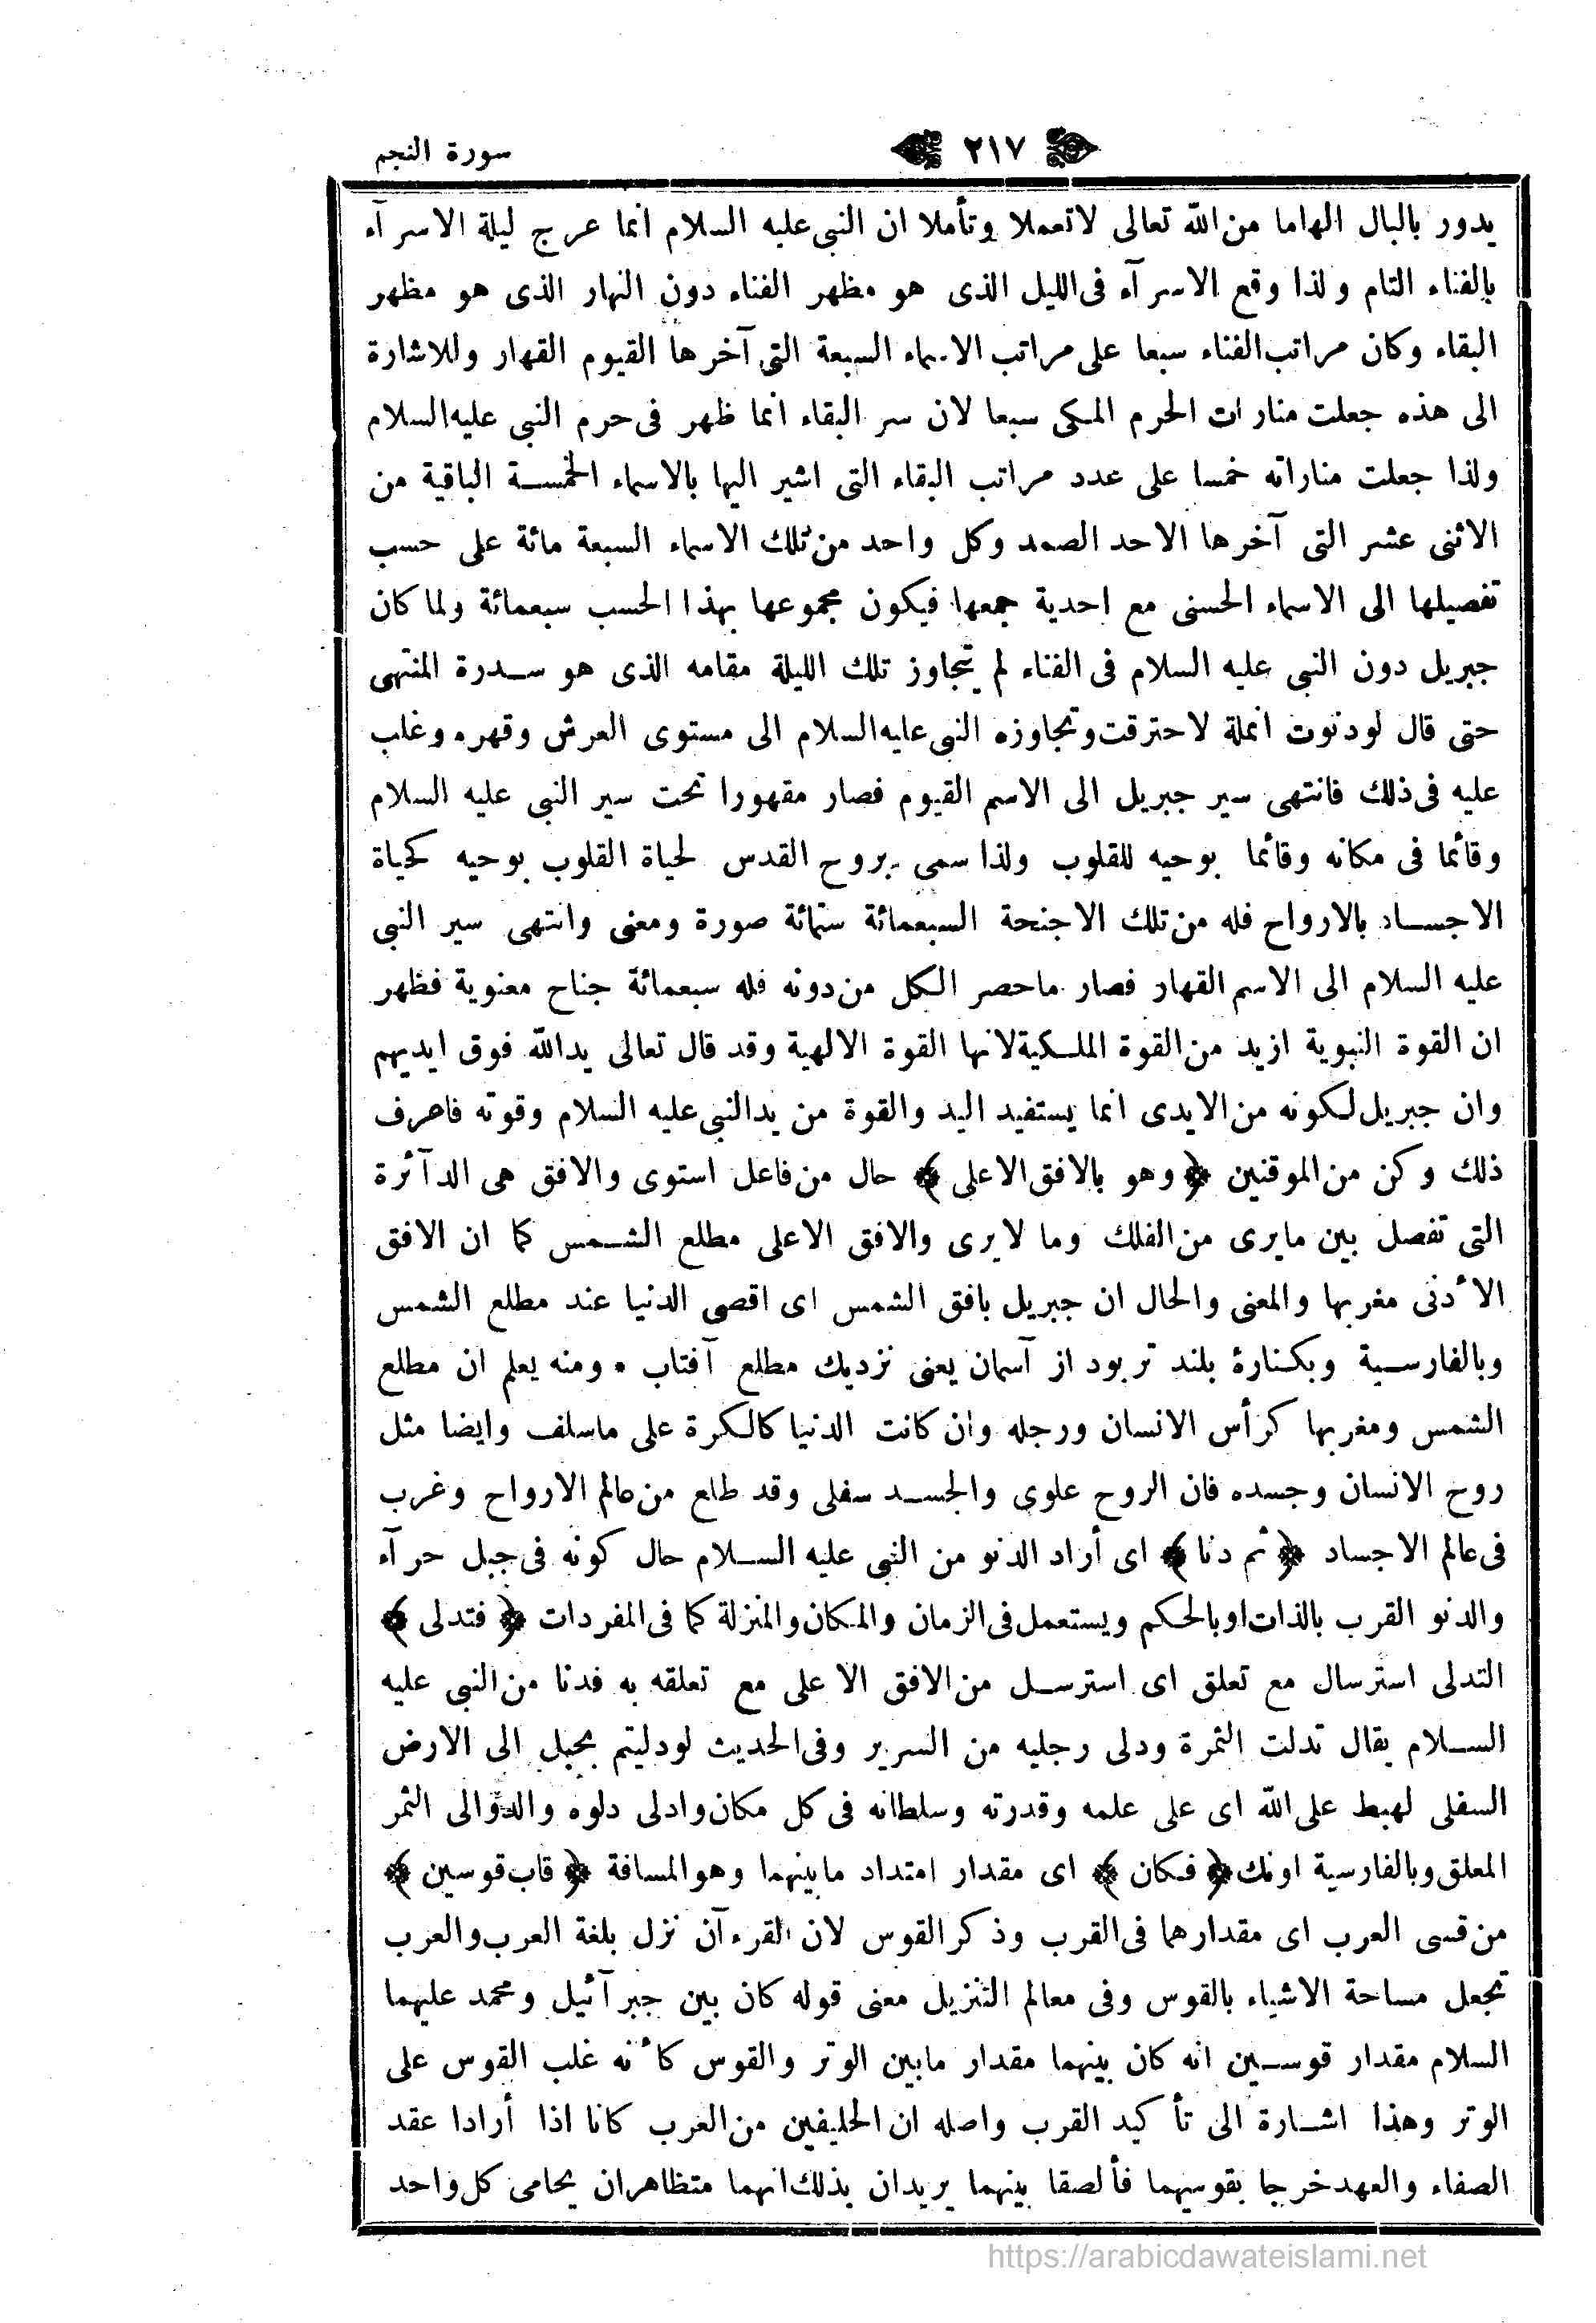 سورة النجم
٢١٧
يدور بالبال الهاما من الله تعالى لاتعملا وتأملا ان النبى عليه السلام انما عرج ليلة الاسرآء
بالفناء التام ولذا وقع الاسرآء فى الليل الذى هو مظهر الفناء دون النهار الذى هو مظهر
البقاء وكان مراتب الفناء سبعا على مراتب الاسماء السبعة التى آخرها القيوم القهار وللاشارة
الى هذه جعلت منارات الحرم المكى سبعا لان سر البقاء انما ظهر فى حرم النبى عليه السلام
ولذا جعلت مناراته خمسا على عدد مراتب البقاء التى اشير اليها بالاسماء الخمسة الباقية من
الاثنى عشر التى آخرها الاحد الصمد وكل واحد من تلك الاسماء السبعة مائة على حسب
تفصيلها الى الاسماء الحسنى مع احدية جمعها فيكون مجموعها بهذا الحسب سبعمائة ولما كان
جبريل دون النبى عليه السلام فى الفناء لم يتجاوز تلك الليلة مقامه الذى هو سدرة المنتهى
حتى قال لودنوت انملة لاحترقت وتجاوزه النبى عليه السلام الى مستوى العرش وقهره وغلب
عليه فى ذلك فانتهى سير جبريل الى الاسم القيوم فصار مقهورا تحت سير النبى عليه السلام
وقائما فى مكانه وقائما بوحيه للقلوب ولذا سمى بروح القدس لحياة القلوب بوحيه كحياة
الاجساد بالارواح فله من تلك الاجنحة السبعمائة ستمائة صورة ومعنى وانتهى سير النبى
عليه السلام الى الاسم القهار فصار ماحصر الكل من دونه فله سبعمائة جناح معنوية فظهر
ان القوة النبوية ازيد من القوة الملكية لانها القوة الالهية وقد قال تعالى يدالله فوق ايديهم
وان جبريل لكونه من الايدى انما يستفيد اليد والقوة من يدالنبى عليه السلام وقوته فاعرف
ذلك وكن من الموقنين ﴿ وهو بالافق الاعلى ﴾ حال من فاعل استوى والافق هى الدآئرة
التى تفصل بين مايرى من الفلك وما لايرى والافق الاعلى مطلع الشمس كما ان الافق
الأدنى مغربها والمعنى والحال ان جبريل بافق الشمس اى اقصى الدنيا عند مطلع الشمس
وبالفارسية وبكنارۀ بلند تر بود از آسمان يعنى نزديك مطلع آفتاب • ومنه يعلم ان مطلع
الشمس ومغربها كرأس الانسان ورجله وان كانت الدنيا كالكرة على ماسلف وايضا مثل
روح الانسان وجسده فان الروح علوى والجسد سفلى وقد طلع من عالم الارواح وغرب
فى عالم الاجساد ﴿ ثم دنا ﴾ اى أراد الدنو من النبى عليه السلام حال كونه فى جبل حرآء
والدنو القرب بالذات اوبالحكم ويستعمل فى الزمان والمكان والمنزلة كما فى المفردات ﴿ فتدلى ﴾
التدلى استرسال مع تعلق اى استرسل من الافق الاعلى مع تعلقه به فدنا من النبى عليه
السلام يقال تدلت الثمرة ودلى رجليه من السرير وفى الحديث لودليتم بحبل الى الارض
السفلى لهبط على الله اى على علمه وقدرته وسلطانه فى كل مكان وادلى دلوه والدّوالى الثمر
المعلق وبالفارسية اونك ﴿ فكان ﴾ اى مقدار امتداد مابينهما وهوالمسافة ﴿ قاب قوسين ﴾
من قسى العرب اى مقدارهما فى القرب وذكر القوس لان القرءآن نزل بلغة العرب والعرب
تجعل مساحة الاشياء بالقوس وفى معالم التنزيل معنى قوله كان بين جبرآئيل ومحمد عليهما
السلام مقدار قوسين انه كان بينهما مقدار مابين الوتر والقوس كأنه غلب القوس على
الوتر وهذا اشارة الى تأكيد القرب واصله ان الحليفين من العرب كانا اذا أرادا عقد
الصفاء والعهد خرجا بقوسيهما فألصقا بينهما يريدان بذلك انهما متظاهران يحامى كل واحد
https://arabicdawateislami.net